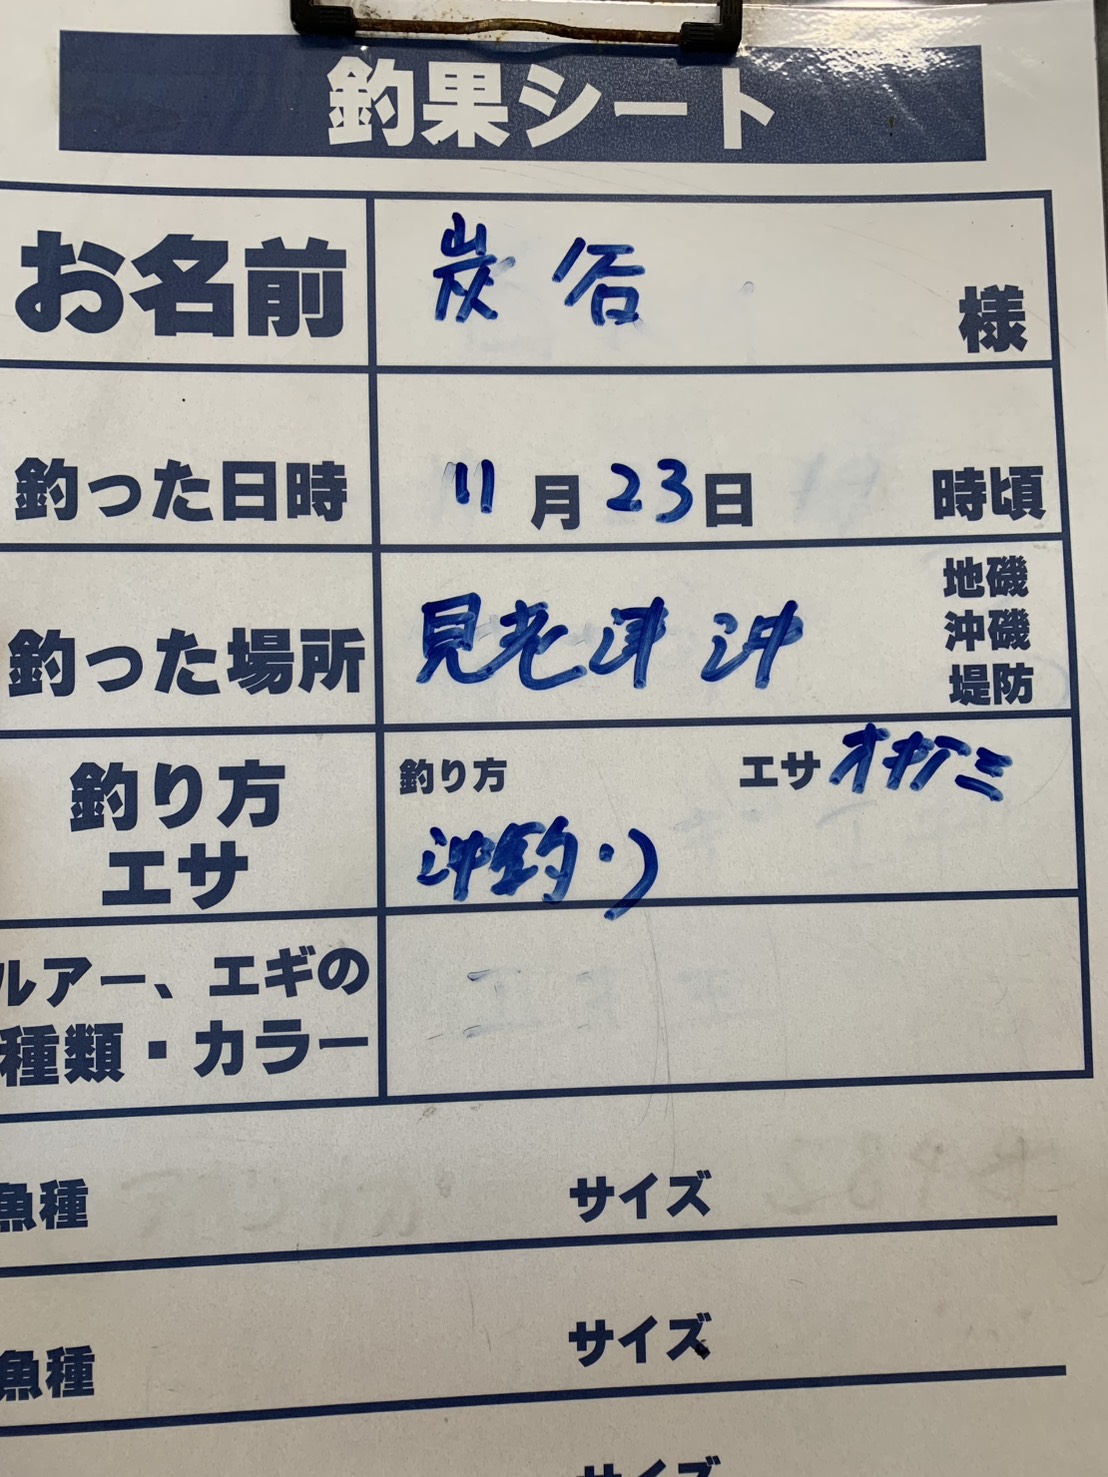 釣果シート
お名前 炭谷 様
釣った日時 11月23日 時頃
釣った場所 見老津沖 地磯
沖磯
堤防
釣り方 エサ オキアミ
釣り方
エサ
沖釣り
ルアー、エギの
種類・カラー
魚種 サイズ
魚種 サイズ
サイズ